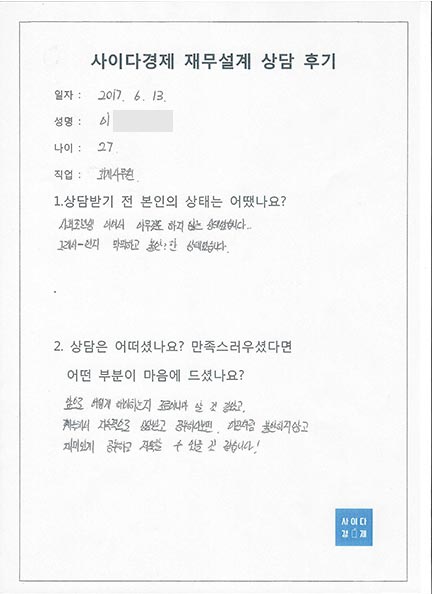 사이다경제 재무설계 상담 후기
일자 : 2017. 6. 13.
성명 : 이
나이 : 27
직업 : 회계사무원
1.상담받기 전 본인의 상태는 어땠나요?
사회초년생 이어서 아무것도 하지 않는 상태였습니다..
그래서-인지 막막하고 불안?한 상태였습니다.
2. 상담은 어떠셨나요? 만족스러우셨다면
어떤 부분이 마음에 드셨나요?
앞으로 어떻게 해야하는지 조금이나마 알 것 같았고,
계속해서 지속적으로 상담받고 공부하다보면, 지금처럼 불안하지않고
재미있게 공부하고 저축할 수 있을 것 같습니다!
사이다
경제